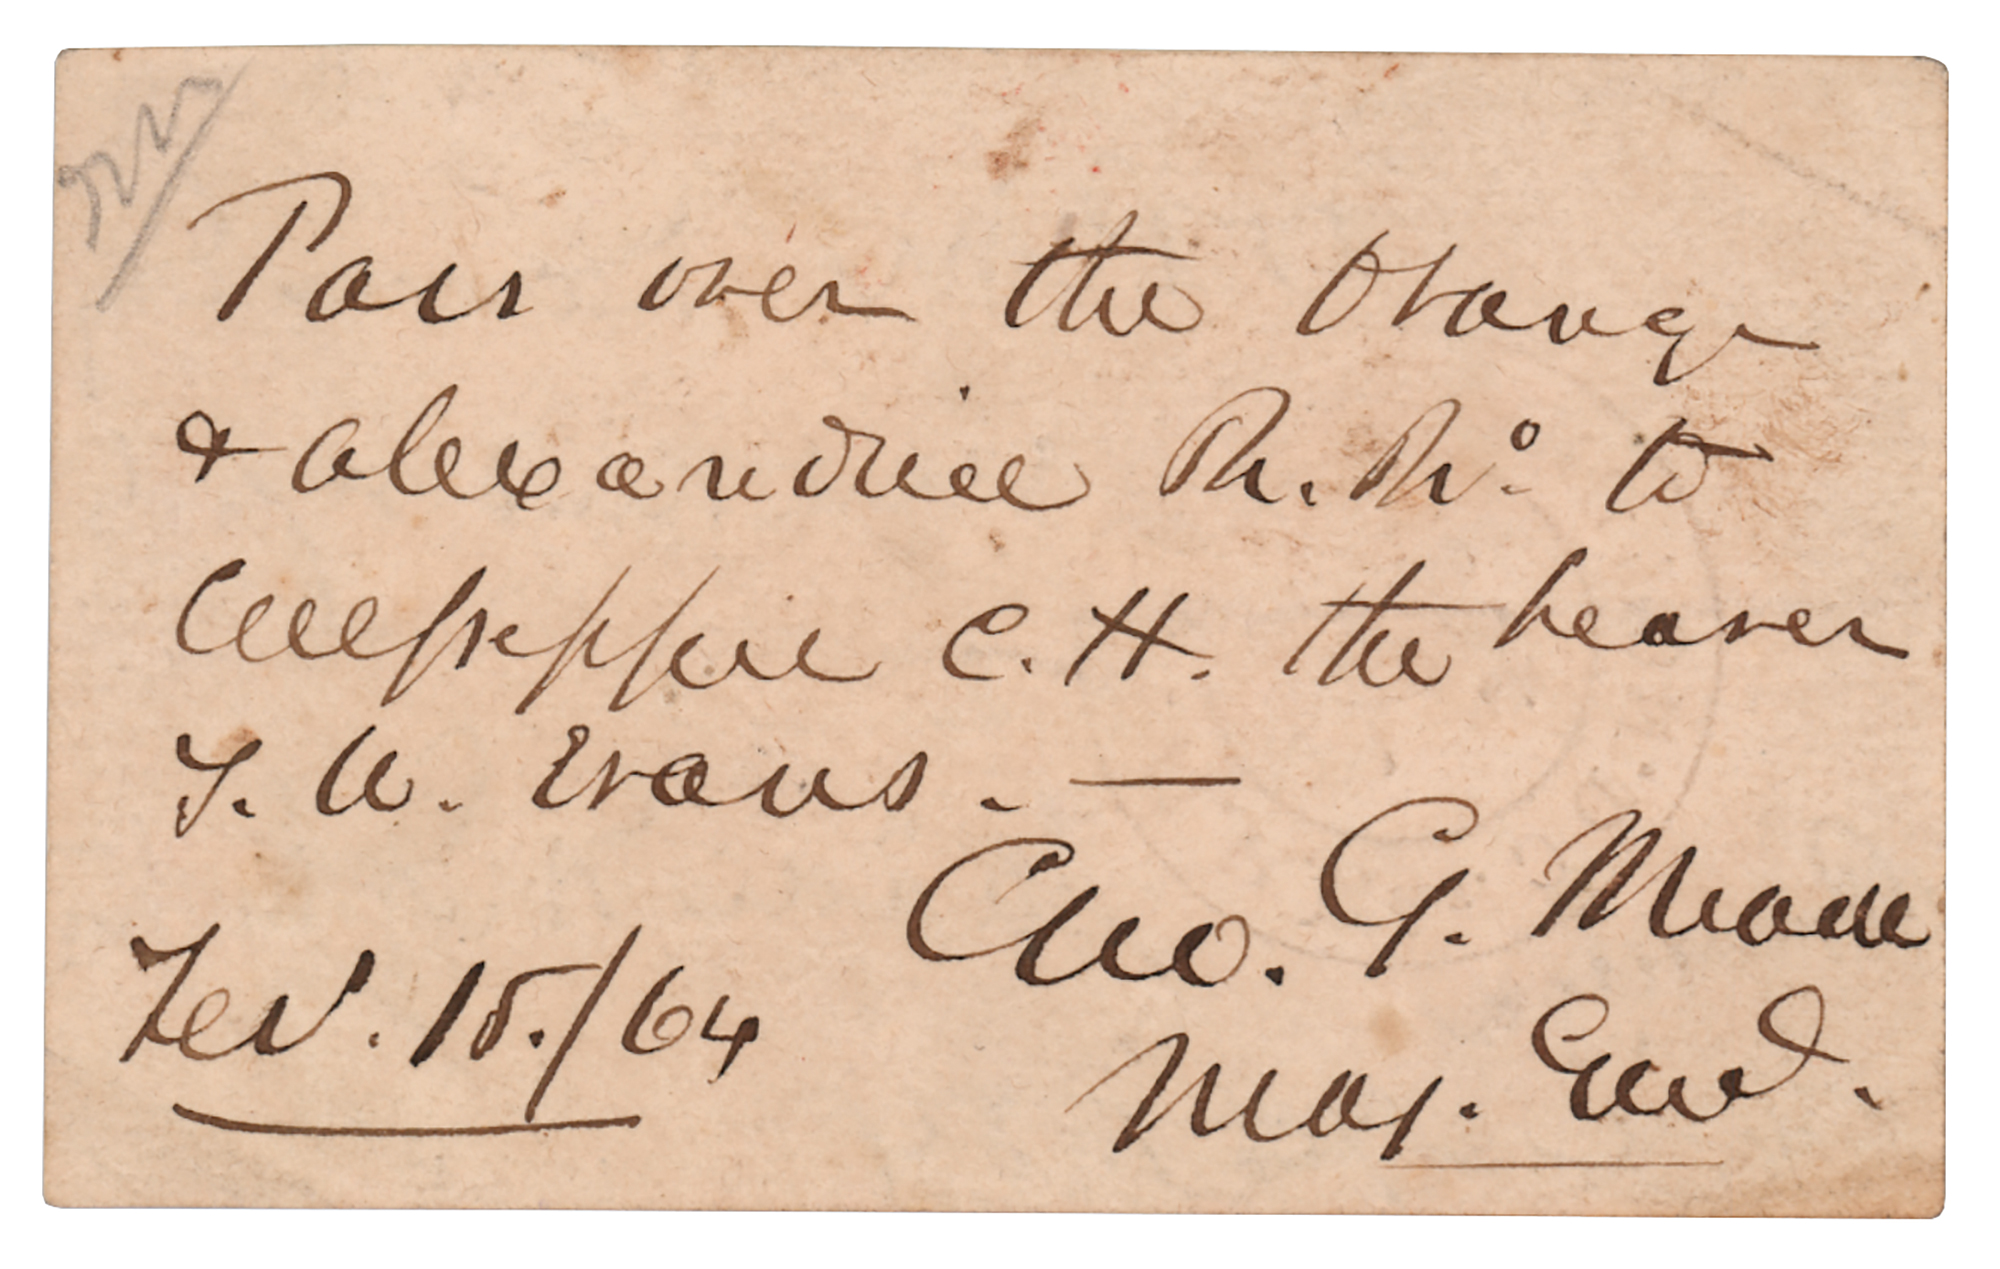 Pass over the Orange
& Alexandria R. Rº. to
Culpepper C. H. the bearer
T. W. Evans. —
Geo. G. Meade
Maj. Genl.
Feb. 15./64